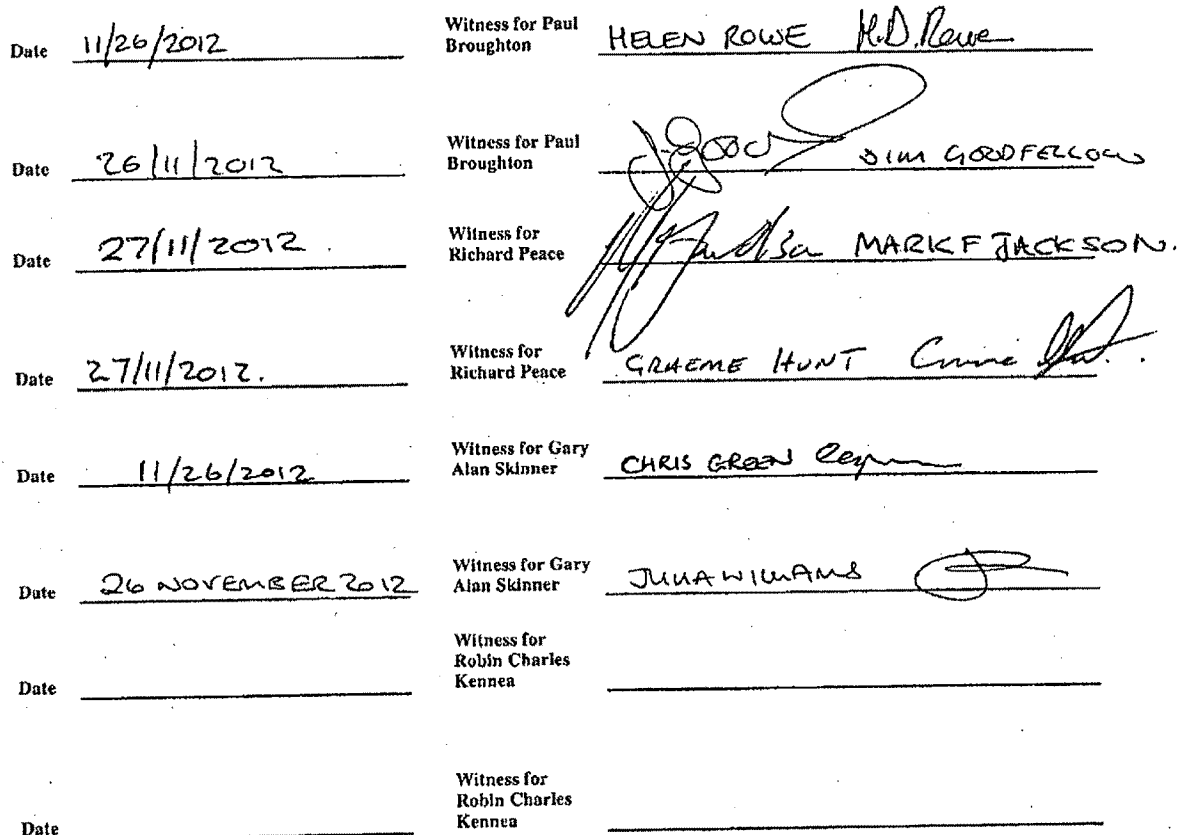 Date 11/26/2012 Witness for Paul Broughton HELEN ROWE H.D. Rowe
Date 26/11/2012 Witness for Paul Broughton JIM GOODFELLOW
Date 27/11/2012. Witness for Richard Peace MARK F JACKSON.
Date 27/11/2012. Witness for Richard Peace GRAEME HUNT
Date 11/26/2012 Witness for Gary Alan Skinner CHRIS GREEN
Date 26 NOVEMBER 2012 Witness for Gary Alan Skinner JULIA WILLIAMS
Date Witness for Robin Charles Kennea
Date Witness for Robin Charles Kennea